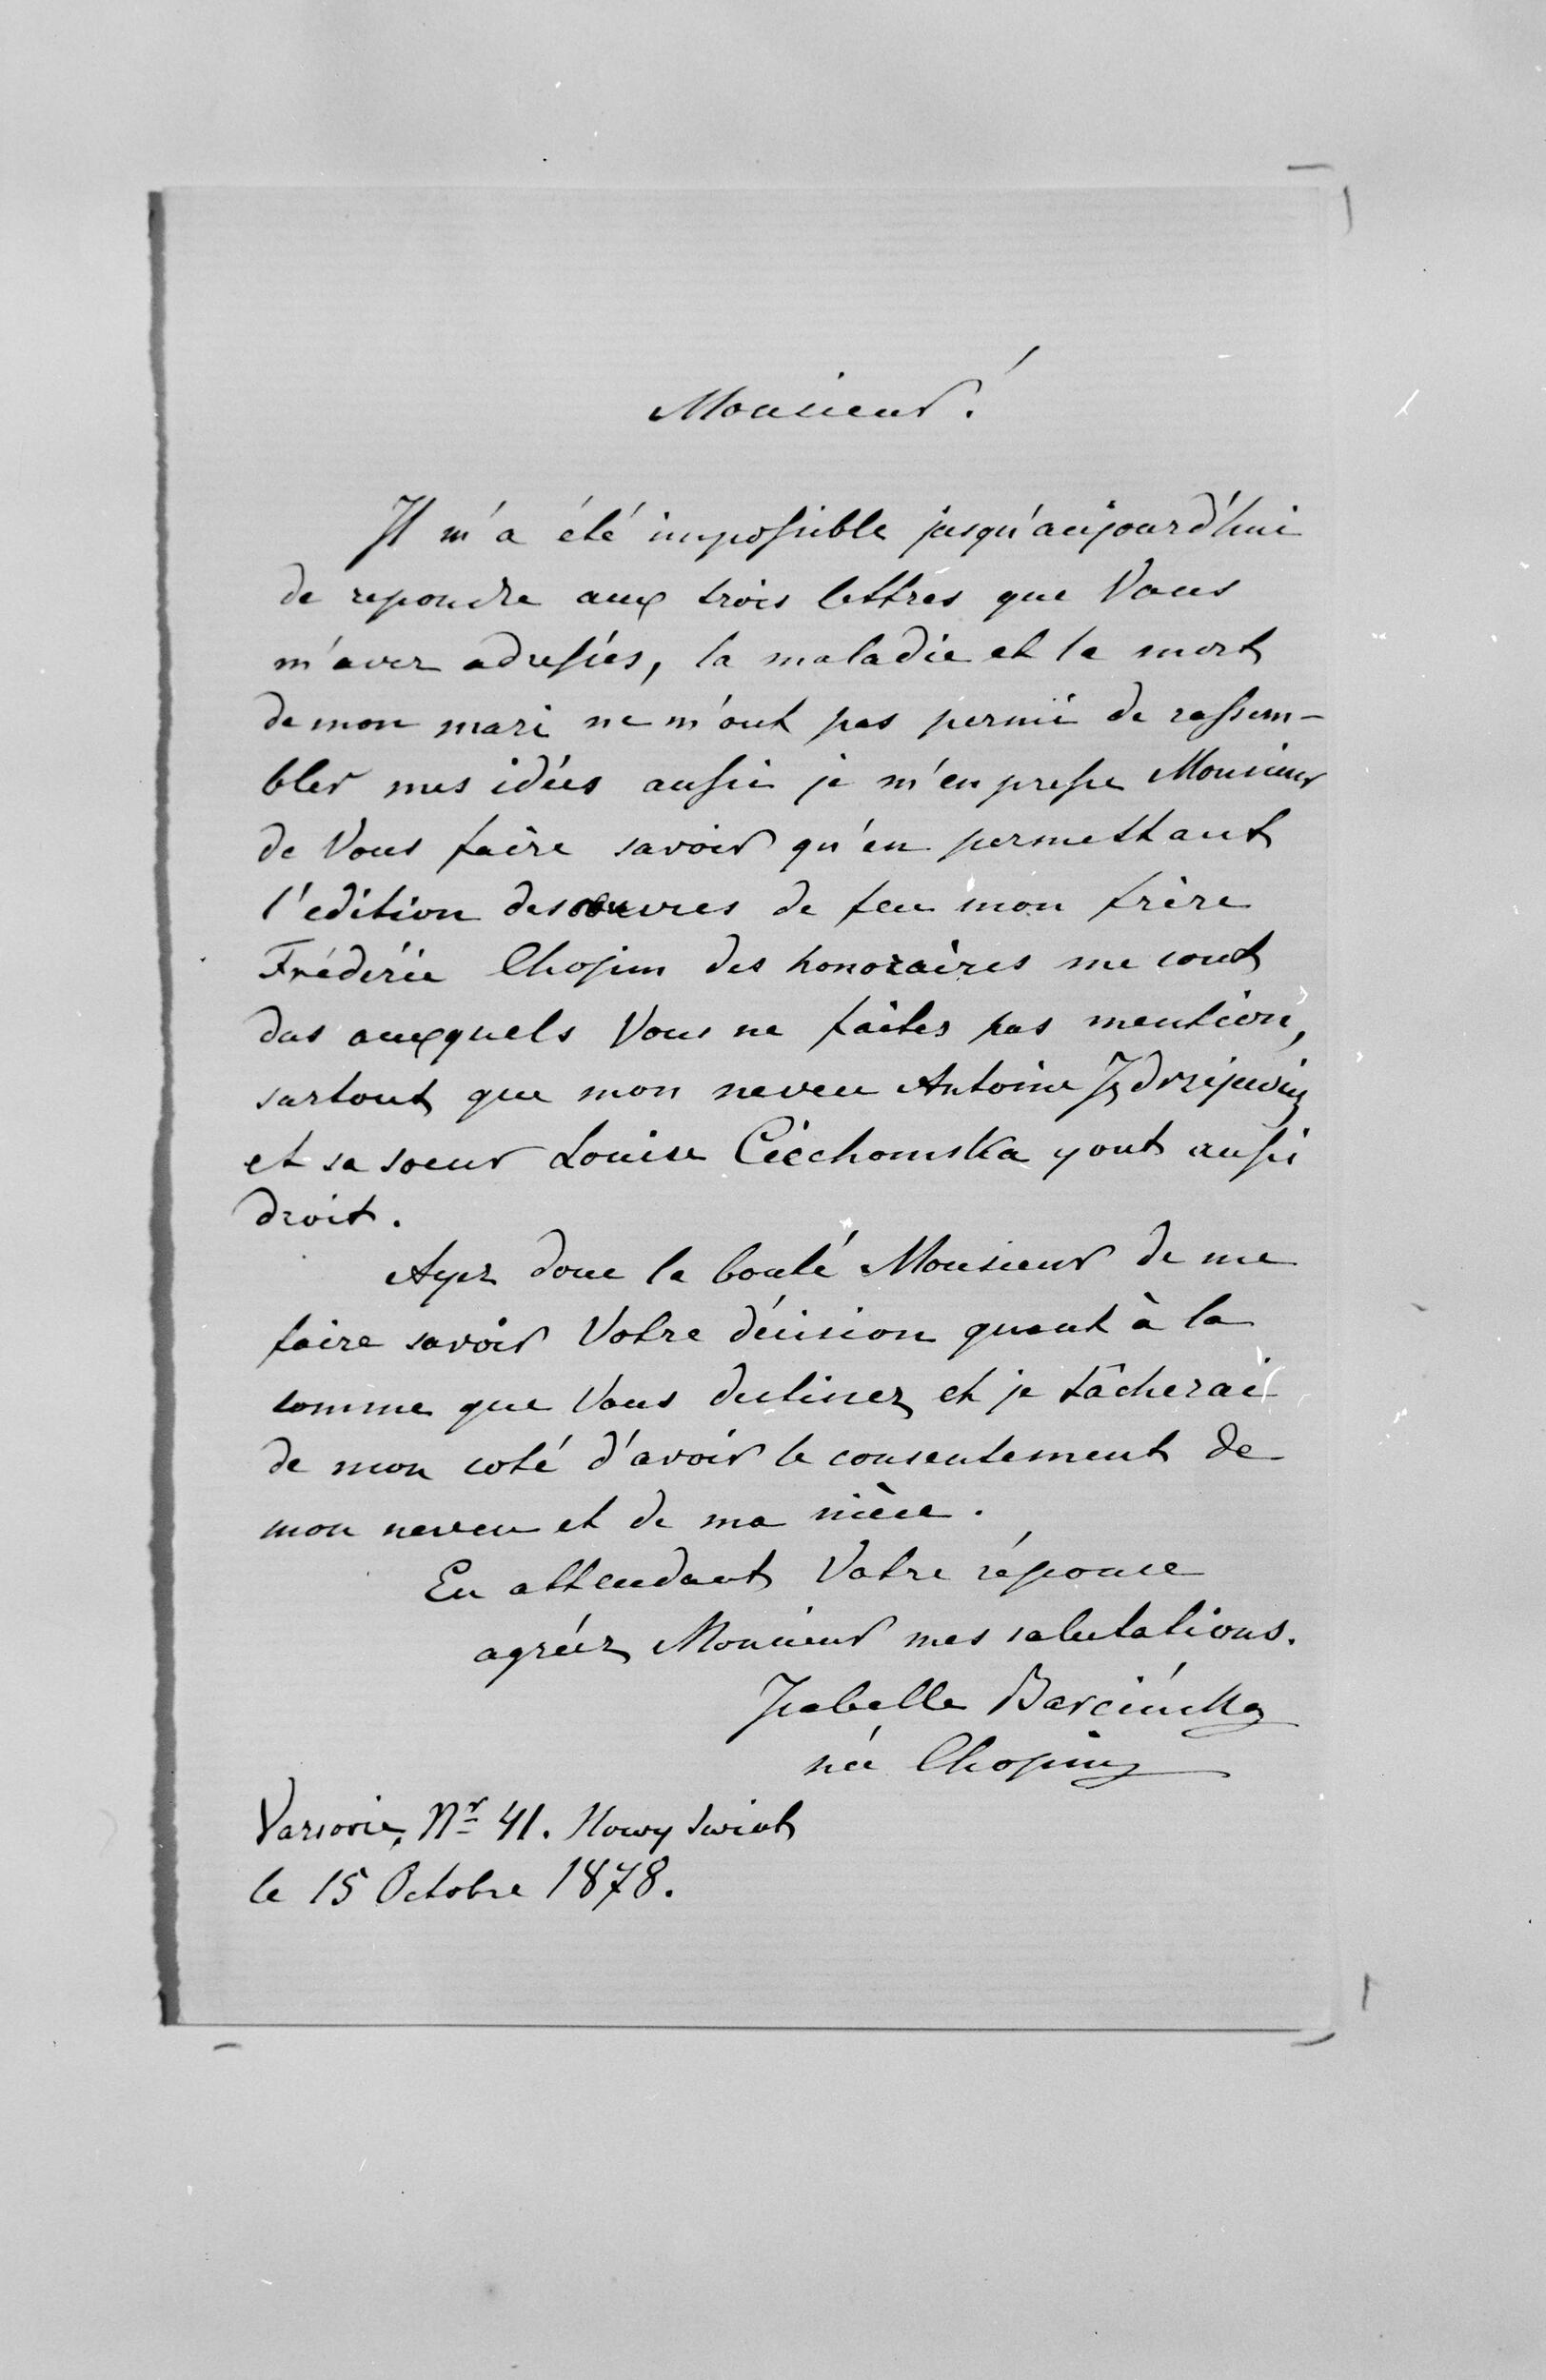 Monsieur!
Il m'a été impossible jusqu'aujourd'hui
de repondre aux trois lettres que Vous
m'avez adressées, la maladie et la mort
de mon mari ne m'ont pas permi de rassem-
bler mes idées aussi je m'empresse Monsieur
de Vous faire savoir qu'en permettant
l'edition des œuvres de feu mon frère
Fréderic Chopin des honoraires me sont
dus auxquels Vous ne faites pas mention,
surtout que mon neveu Antoine Jędrzejewicz
et sa soeur Louise Ciechomska y ont aussi
droit.
Ayez donc la bonté Monsieur de me
faire savoir Votre décision quant à la
somme que Vous destinez et je tâcherai
de mon coté d'avoir le consentement de
mon neveu et de ma nièce.
En attendant Votre réponse
agréez Monsieur mes salutations.
Isabelle Barcińska
née Chopin
Varsovie, Nr 41. Nowy Swiat
le 15 Octobre 1878.